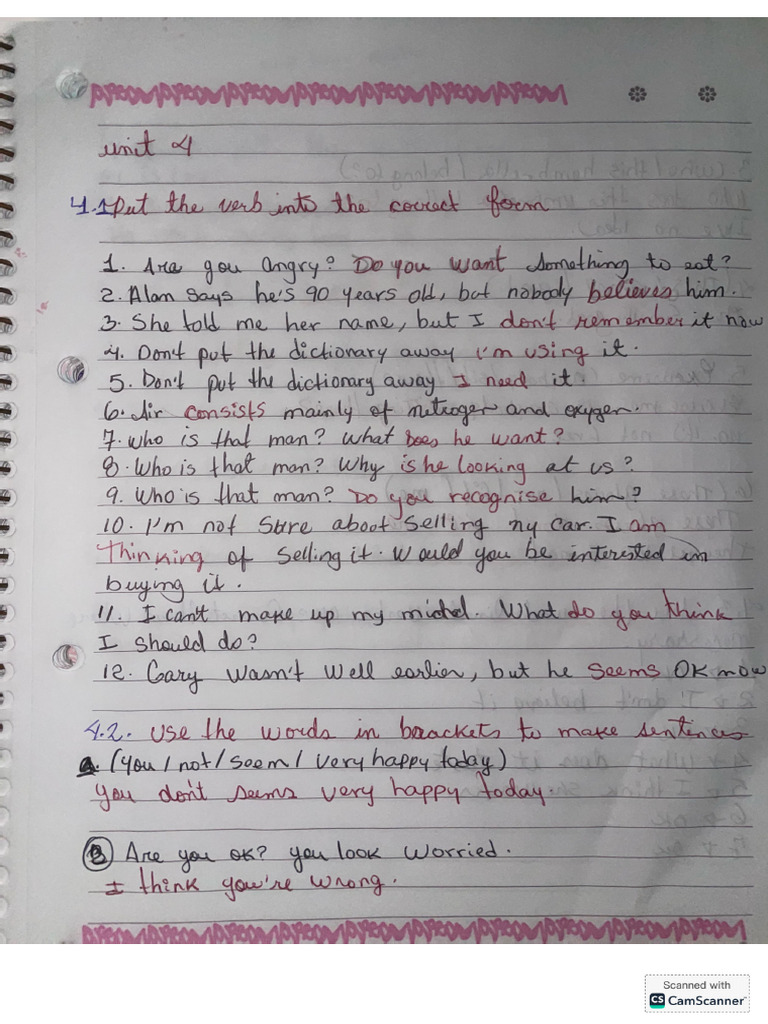 unit 4
4.1 Put the verb into the correct form
1. Are you angry? Do you want something to eat?
2. Alan says he's 90 years old, but nobody believes him.
3. She told me her name, but I don't remember it now
4. Don't put the dictionary away I'm using it.
5. Don't put the dictionary away I need it.
6. Air consists mainly of nitroger and oxygen.
7. who is that man? what Does he want?
8. Who is that man? Why is he looking at us?
9. Who is that man? Do you recognise him?
10. I'm not sure about selling ny car. I am
thinking of selling it. Would you be interested in
buying it.
11. I can't make up my michd. What do you think
I should do?
12. Gary wasn't well earlier, but he seems OK now
4.2. use the words in brackets to make sentences
(you / not / seem / very happy today)
you don't seems very happy today.
Are you ok? you look worried.
I think you're wrong.
Scanned with
CS CamScanner